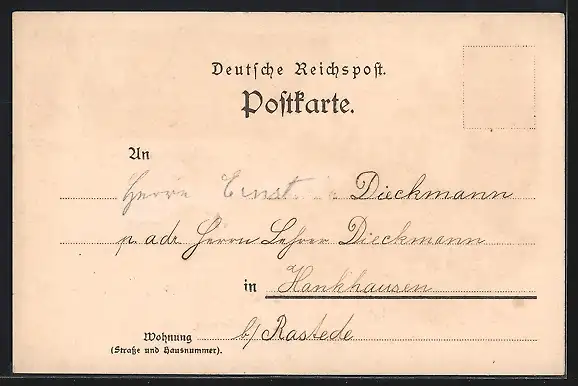 Deutsche Reichspost.
Postkarte.
An
Herrn Ernst Dieckmann
p. adr. Herrn Lehrer Dieckmann
in Hankhausen
Wohnung b/ Rastede
(Straße und Hausnummer).